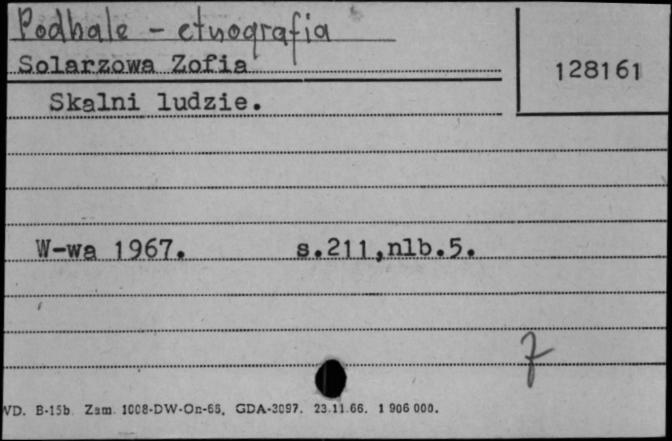 Podhale - etnografia
Solarzowa Zofia
128161
Skalni ludzie.
W-wa 1967. s.211,nlb.5.
7
WD. B-15b. Zam. 1008-DW-On-66, GDA-3097. 23.11.66. 1 906 000.